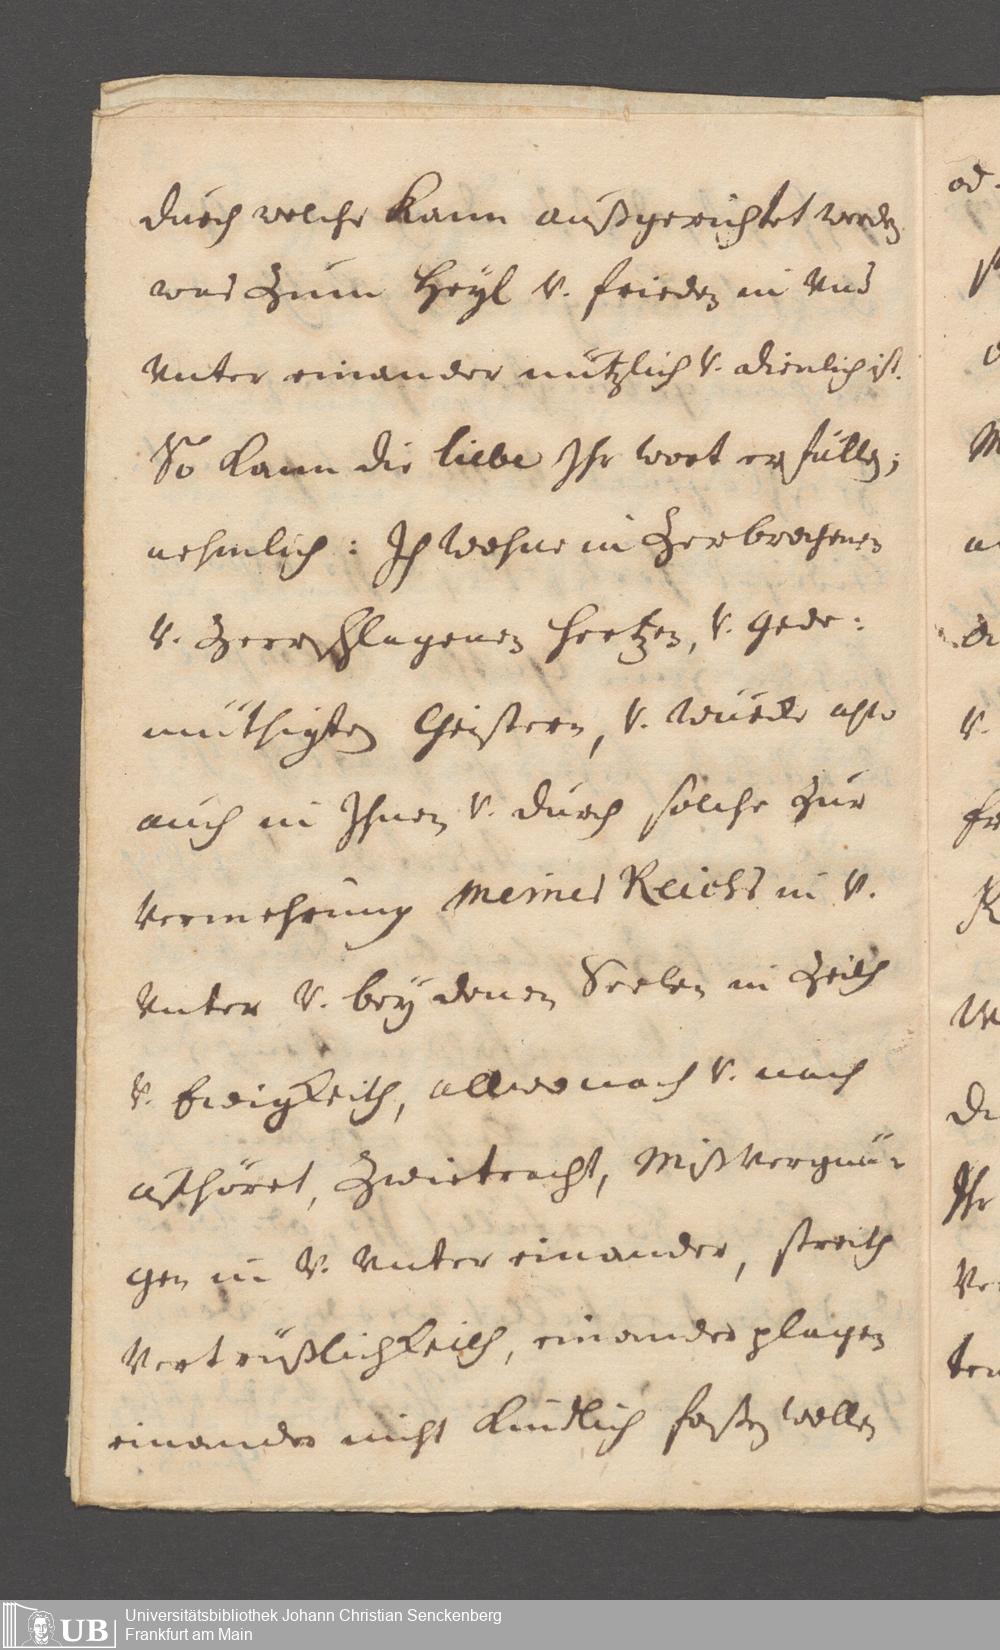 durch welche Kann außgerichtet werden
was Zum Heyl v. frieden in Uns
Unter einander nützlich v. dienlich ist.
So kann die liebe Ihr wort erfüllen;
nehmlich: Ich wohne in Zerbrochenen
v. Zerschlagenen Hertzen, v. gede:
müthigten Geistern, v. würcke also
auch in Ihnen v. durch solche zur
Vermehrung meines Reichs in v.
Unter v. bey denen Seelen in Zeith
v. Ewigkeith, allwo nach v. nach
aufhöret, Zwietracht, Mißvergnü-
gen in v. Unter einander, streith
Vertrüßlichkeith, einander plagen
einander nicht Kindlich faßen wollen
UB
Universitätsbibliothek Johann Christian Senckenberg
Frankfurt am Main